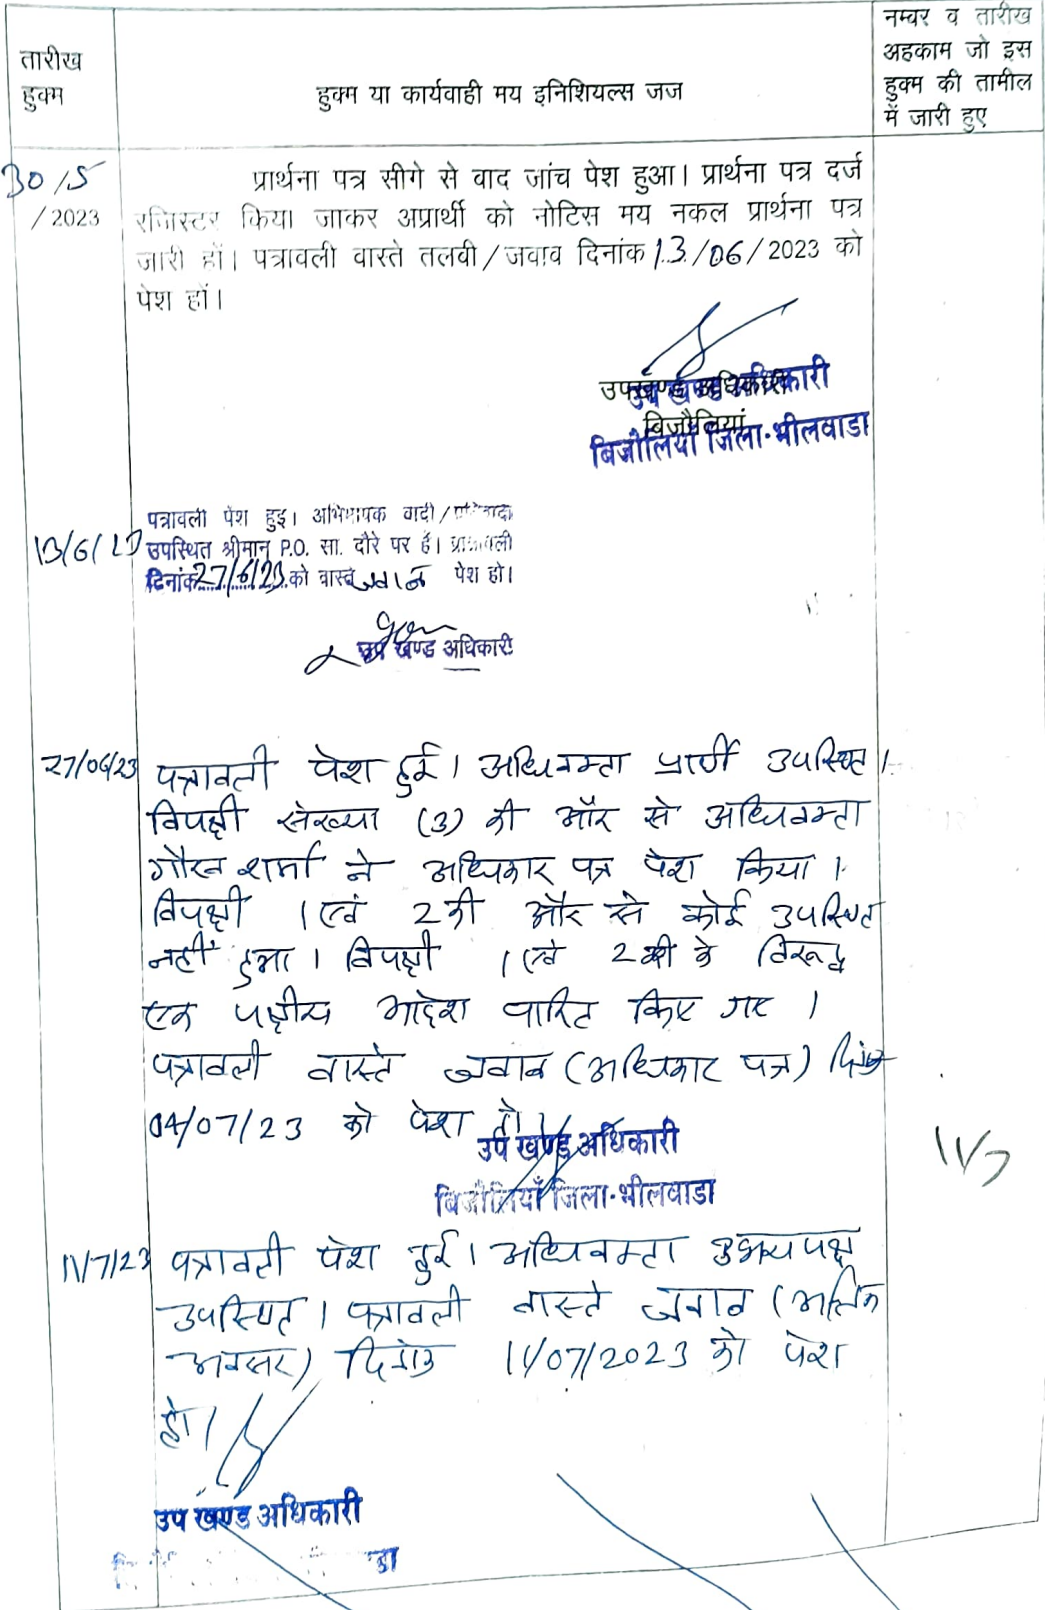 तारीख
हुक्म
हुक्म या कार्यवाही मय इनिशियल्स जज
नम्बर व तारीख
अहकाम जो इस
हुक्म की तामील
में जारी हुए
30/5
/2023
प्रार्थना पत्र सीगे से वाद जांच पेश हुआ। प्रार्थना पत्र दर्ज
रजिस्टर किया जाकर अप्रार्थी को नोटिस मय नकल प्रार्थना पत्र
जारी हों। पत्रावली वास्ते तलवी/जवाव दिनांक 13/06/2023 को
पेश हों।
उपखण्ड अधिकारी
बिजौलियां
उप खण्ड अधिकारी
बिजौलियाँ जिला-भीलवाडा
13/6/23
पत्रावली पेश हुइ। अभिभाषक वादी/प्रतिवादी
उपस्थित श्रीमान् P.O. सा. दौरे पर हैं। पत्रावली
दिनांक 27/6/23 को वास्ते जवाब पेश हो।
उप खण्ड अधिकारी
27/06/23
पत्रावली पेश हुई। अधिवक्ता प्रार्थी उपस्थित।
विपक्षी संख्या (3) की ओर से अधिवक्ता
गौरव शर्मा ने अधिकार पत्र पेश किया।
विपक्षी 1 एवं 2 की और से कोई उपस्थित
नहीं हुआ। विपक्षी 1 एवं 2 के विरूद्ध
एक पक्षीय आदेश पारित किए गए।
पत्रावली वास्ते जवाब (अधिकार पत्र) दिनांक
04/07/23 को पेश हो।
उप खण्ड अधिकारी
बिजौलियाँ जिला-भीलवाडा
11/7
11/7/23
पत्रावली पेश हुई। अधिवक्ता उभयपक्ष
उपस्थित। पत्रावली वास्ते जवाब (अन्तिम
अवसर) दिनांक 11/07/2023 को पेश
हो।
उप खण्ड अधिकारी